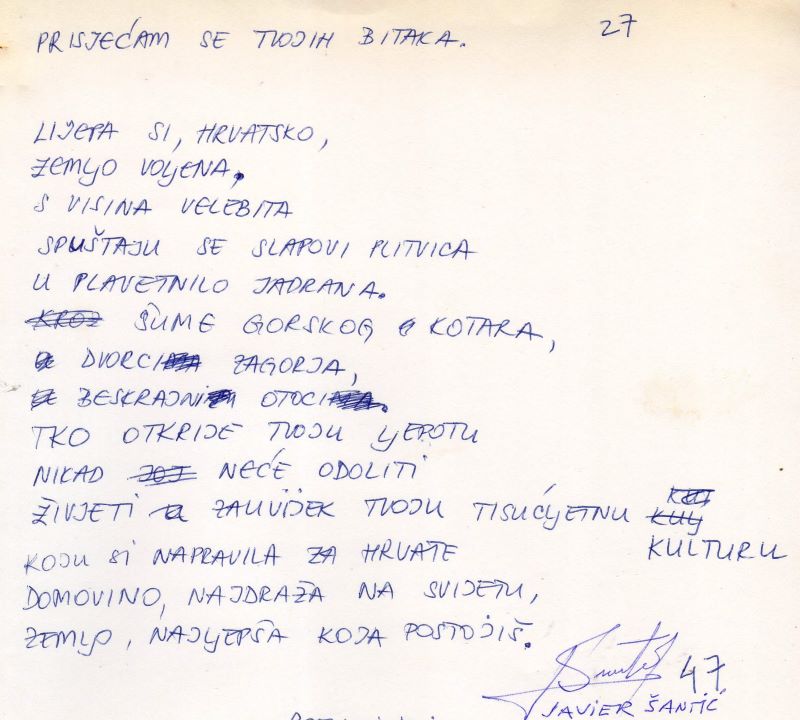 PRISJEĆAM SE TVOJIH BITAKA. 27
LIJEPA SI, HRVATSKO,
ZEMLJO VOLJENA.
S VISINA VELEBITA
SPUŠTAJU SE SLAPOVI PLITVICA
U PLAVETNILO JADRANA.
KROZ ŠUME GORSKOG KOTARA,
DVORCI ZAGORJA,
BESKRAJNI OTOCI
TKO OTKRIJE TVOJU LJEPOTU
NIKAD JOJ NEĆE ODOLITI
ŽIVJETI ZAUVIJEK TVOJU TISUĆLJETNU
KULTURU
KOJU SI NAPRAVILA ZA HRVATE
DOMOVINO, NAJDRAŽA NA SVIJETU,
ZEMLJO, NAJLJEPŠA KOJA POSTOJIŠ.
47
JAVIER ŠANTIĆ